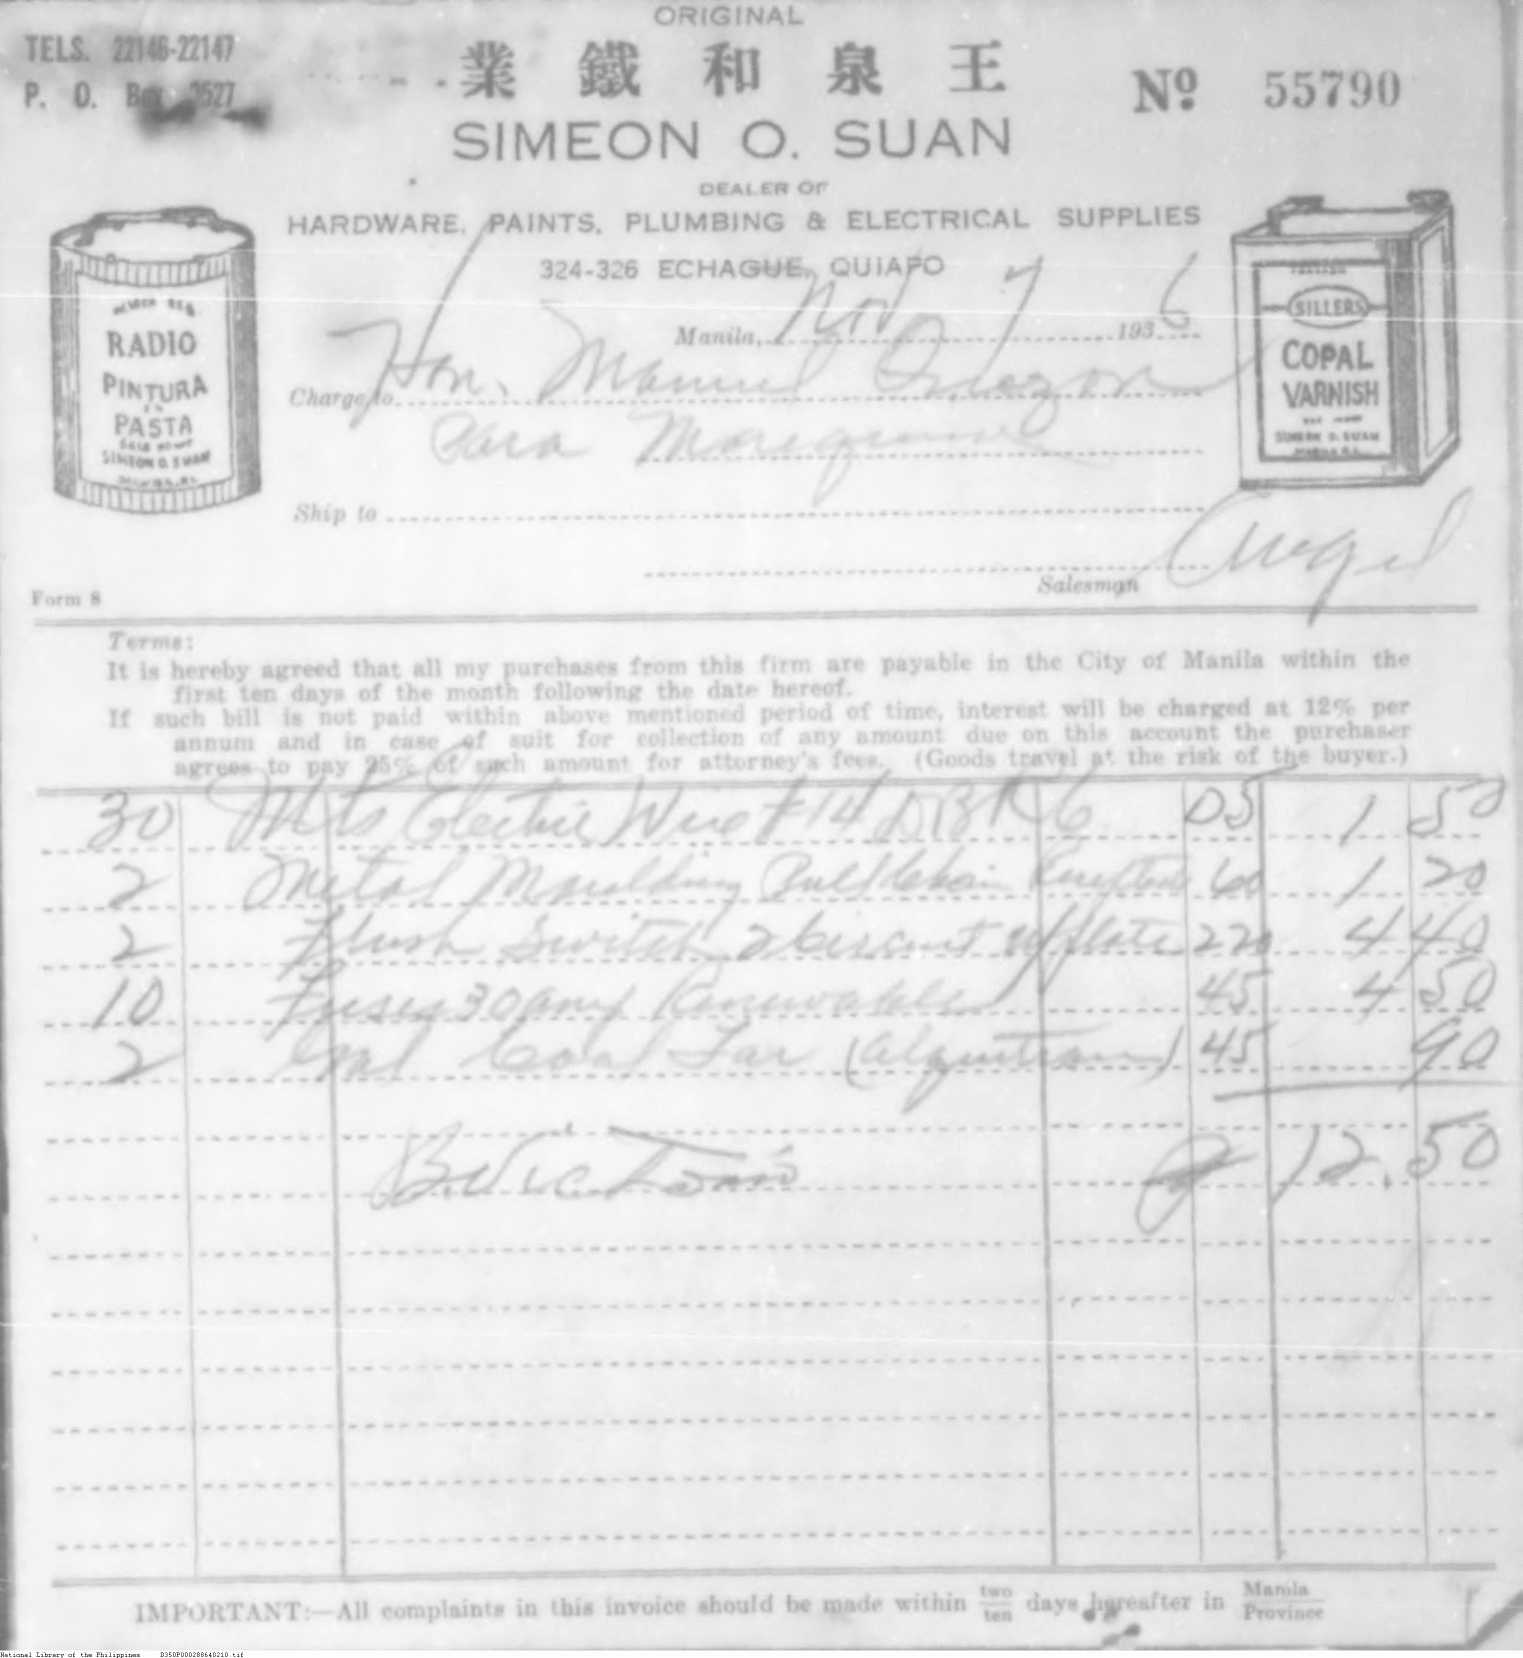 ORIGINAL
TELS. 22146-22147
P. O. Box 3527
業 鐵 和 泉 王
Nº 55790
SIMEON O. SUAN
DEALER OF
HARDWARE, PAINTS, PLUMBING & ELECTRICAL SUPPLIES
324-326 ECHAGUE, QUIAPO
Manila, Nov 7 1936
Charge to Hon. Manuel Quezon
Para
Ship to
Salesman Angel
RADIO
PINTURA
EN
PASTA
SOLD BY
SIMEON O. SUAN
MANILA, P.I.
SILLERS
COPAL
VARNISH
SIMEON O. SUAN
MANILA P.I.
Form 8
Terms:
It is hereby agreed that all my purchases from this firm are payable in the City of Manila within the
first ten days of the month following the date hereof.
If such bill is not paid within above mentioned period of time, interest will be charged at 12% per
annum and in case of suit for collection of any amount due on this account the purchaser
agrees to pay 25% of such amount for attorney's fees. (Goods travel at the risk of the buyer.)
30 Mts Electric Wire #14 DBR 6 05 1 50
2 Metal Moulding Pull Chain Receptacle 60 1 20
2 Flush Switch 2 circuit w/plate 220 4 40
10 Fuses 30 amp Renewable 45 4 50
2 Gal Coal Tar (Alquitran) 45 90
12.50
IMPORTANT:—All complaints in this invoice should be made within two/ten days hereafter in Manila/Province
National Library of the Philippines D350P000288640210.tif